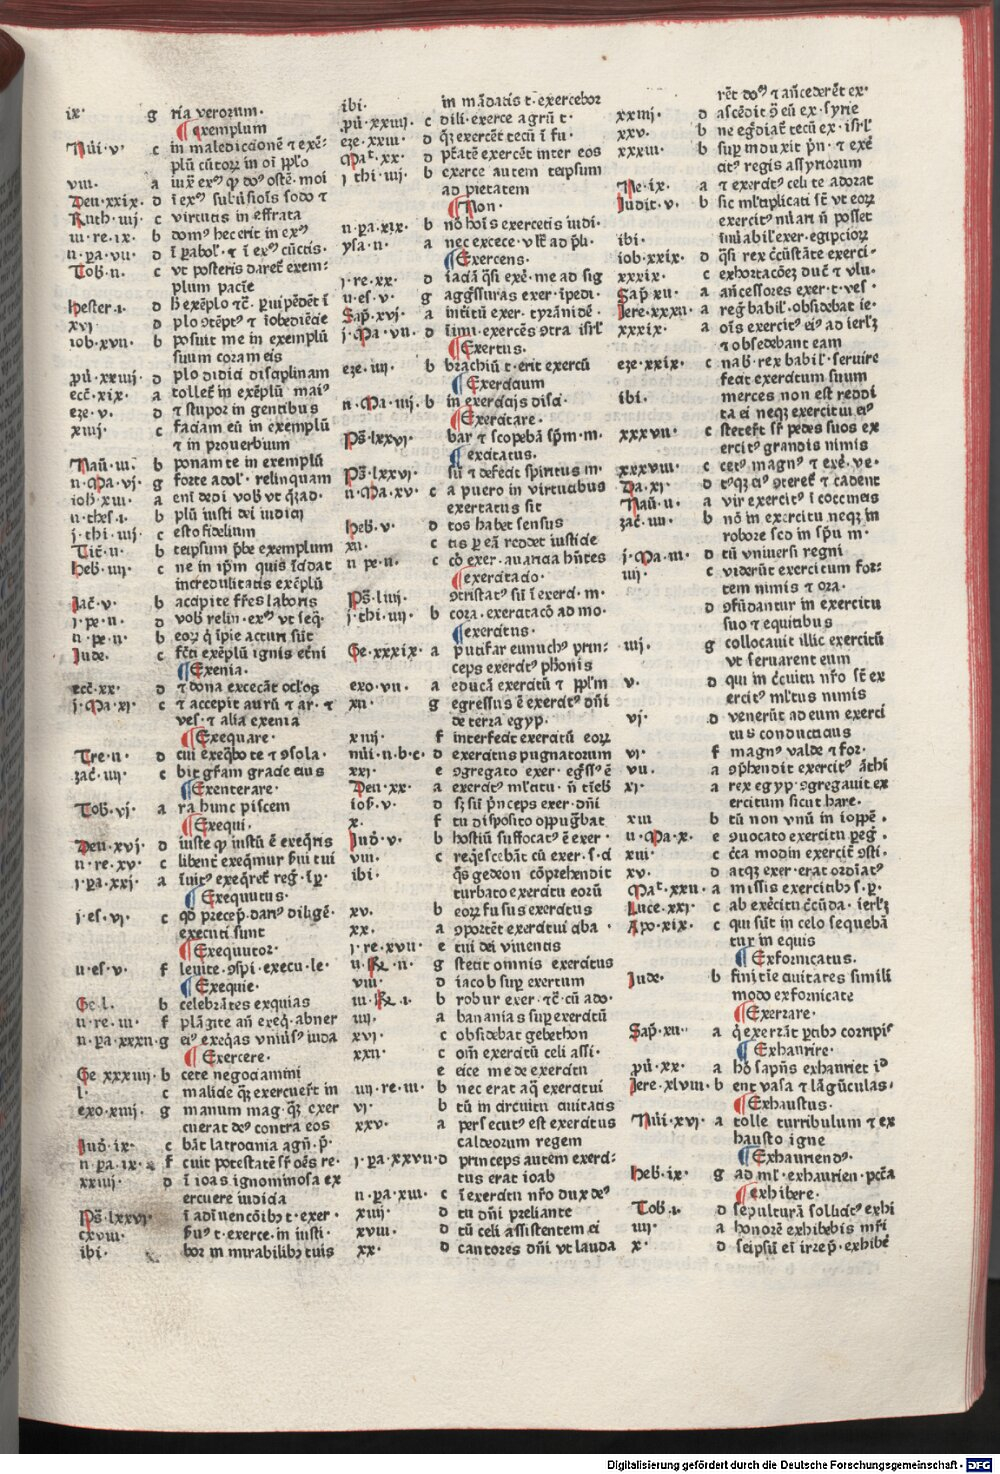 ix· g ria verorum·
¶ Exemplum
Nūi·v· c in malediccionē ⁊ exē⸗
plū cūtorꝫ in oī pplo
viii· a
Deu·xxix· d ī exꝰ subūsiōis sodo ⁊
Ruth·iiij c virtutis in effrata
iii·re·ix· b domꝰ hec erit in exꝰ
n·pa·vii· d ī pabol·⁊ ī exꝰ cūctis·
Tob·ii· c vt posteris daret exem⸗
plum pacīe
Hester·i· d
xvi d plo ↄtēptꝰ ⁊ īobediēcie
iob·xvii· b posuit me in exemplū
suum coram eis
pū·xxiiij· d plo didici disciplinam
ecc̄·xix· a tollet̄ in exēplū·maiꝰ
eze·v· d ⁊ stupor in gentibus
xiiij· c faciam eū in exemplū
⁊ in proverbium
Naū·iii· b ponam te in exemplū
n·Ma·vj· g forte adol·relinquam
iob·xiii· a enī dedi vob̄ vt q̄zad·
n·thes·i· b plū iusti dei iudicij
j·thi·iiij· c esto fidelium
Tit·ii· b teipsum p̄be exemplum
Heb̄·iiij· c ne in ip̄m quis īcidat
incredulitatis exēplū
Jac̄·v· b accipite fr̄es laboris
j·pe·ii· d vob̄ relin·exꝰ vt seq̄·
n·pe·ii· b eorꝫ q̄ īpie acturi sūt
Jude· c fc̄ti exēplū ignis et̄ni
¶ Exenia·
ecc̄·xx· d ⁊ dona excecāt oclōs
j·Ma·xi· c ⁊ accepit aurū ⁊ ar·⁊
ves·⁊ alia exenia
¶ Exequare·
Tre·ii· d cui exeq̄bo te ⁊ ↄsola·
zac̄·iiij· c bit gr̄am gracie eius
¶ Exenterare·
Tob·vj· a ra hunc piscem
¶ Exequi·
Deu·xvj· d iuste qp iustū ē exeq̄ris
n·re·xv· c libent̄ exeq̄mur
j·pa·xxj· a
¶ Exequutus·
j·es·vj· c qd̄ precep̄·dariꝰ diligē·
executi sunt
¶ Exequutor·
n·es·v· f levite·ↄspi·execu·le·
¶ Exequie·
Ge·l· b celebrātes exquias
n·re·iii· f plāgite an̄ exeq̄·abner
n·pa·xxxii·g eiꝰ exeq̄as vniūsꝰ iuda
¶ Exercere·
Ge xxxiiij·b cete negociamini
l· c malicie q̄ꝫ exercuer̄t in
exo·xiiij· g manum mag·q̄ꝫ exer
cuerat deꝰ contra eos
Jud̄·ix· c bāt latrocinia agn̄·p̄·
n pa·ix· f cuit potestatē sr̄ oēs re·
xxiiij· d ī ioas ignominiosa ex
ercuere iudicia
Ps̄·lxxvj· ī adīuencōibꝫ t·exer·
cxviii· ·t·exerce·in iusti·
ibi· bor in mirabilibꝫ tuis
ibi· in mādatis t·exercebor
pū·xxiiij· c dili·exerce agrū t·
eze·xxiii· d q̄ꝫ exercēt tecū ī fu·
Mat̄·xx· d p̄tatē exercēt inter eos
j thi·iiij· b exerce autem teipsum
ad pietatem
¶ Non·
n·pa·xix· b nō hoīs exercetis iudi·
ysa·ii· a
¶ Exercens·
j·re·xx·
n·es·v· g
Sap̄·xvj· a
j·Ma·vii· d īimi·exercēs ↄtra isrl̄
¶ Exertus·
eze·iiij· b brachiū t·erit exercū
¶ Exercicium
n·Ma·iiij·b in exercicijs disci·
¶ Exercitare·
Ps̄·lxxvj· bar ⁊ scopebā sp̄m·m·
¶ exercitatus·
Ps̄·lxxvj· sū ⁊ defecit spiritus m·
n·Ma·xv· c a puero in virtutibus
exercitatus sit
Heb̄·v· d tos habet sensus
xii· c tis p eā reddet iusticie
n pe·ii· c cō exer·auaricia hn̄tes
¶ exercitacio·
Ps̄·liiij· ↄtristatꝰ sū ī exerci·m·
j·thi·iiij· b cora·exercitacō ad mo·
¶ exercitus·
Ge·xxxix· a putifar eunuchꝰ prin⸗
ceps exercitꝰ phōnis
exo·vii· a educā exercitū ⁊ pplm̄
xii· g egressus ē exercitꝰ dn̄i
de terra egyp·
xiiij· f interfecit exercitū eorꝫ
nūi·ii·b·c· d exercitus pugnatorum
xxj· e ↄgregato exer·egss̄ꝰ ē
Deu·xx· a exercitꝰ ml̄titu·
iob̄·v· d sꝫ sū p̄nceps exer·dn̄i
x· f tu disposito oppug̃bat
Jud̄·v· b hostiū suffocatꝰ ē exer·
viii· c req̄escebāt cū exer·s·d
ibi· q̄s gedeon cōprehendit
turbato exercitu eorū
xv· b eorꝫ fusus exercitus
xx· a ↄportēt exercitui ciba·
j·re·xvii· e tui dei viuentis
n·Re·ii· g stetit omnis exercitus
viii· d iacob sup exertum
iii·Re·i· b robur exer·⁊c̄·cū ado·
iiij· a bananias sup exercitū
xvj· c obsidebat gebethon
xxii· c om̄ exercitū celi assi·
e eice me de exercitu
iiij·re·iii· b nec erat aq̄ exercitui
vj· b tū in circuitu ciuitatis
xxv· a persecutꝰ est exercitus
caldeorum regem
j·pa·xxvii·d princeps autem exerci⸗
tus erat ioab
n·pa·xiii· c ī exercitu nr̄o dux deꝰ
xiiij· d tu dn̄i preliante
xviii· d tū celi assistentem ei
xx· d cantores dn̄i vt lauda
rēt dōꝰ ⁊ an̄cederēt ex·
xxiij· d ascēdit ↄ eū ex·syrie
xxv· b ne eg̃diat̄ tecū ex·isrl̄
xxxiii· b sup induxit p̄n·⁊ exē
citꝰ regis assyriorum
Ne·ix· a ⁊ exercitꝰ celi te adorat
Judit·v· b sic ml̄tiplicati st̄ vt eorꝫ
exercitꝰ nūari ñ posset
ibi· exer·egipciorꝫ
iob·xxix· d q̄si rex cc̄ūstāte exerci·
xxxix· c exhortacōeꝫ duc̄ ⁊ vlu·
Sap̄·xii· a an̄cessores exer·t·ves·
Jere·xxxii· a reg̃ babil̄·obsidebat ie·
xxxix· a oīs exercitꝰ eiꝰ ad ierlꝫ
⁊ obsedebant eam
eze·xxix· c nab̄·rex babil̄·seruire
fecit exercitum suum
ibi· merces non est reddi
ta ei neqꝫ exercitui eiꝰ
xxxvii· c stetert̄ sr̄ pedes suos ex
ercitꝰ grandis nimis
xxxviii· c cetꝰ magnꝰ ⁊ exē·ve·
Da·xj· d
Naū·ii· a vir exercitꝰ ī coccineis
zac̄·iiii· b nō in exercitu neqꝫ in
robore sed in sp̄u m·
j·Ma·iii· d tū vniuersi regni
iiij· c viderūt exercitum for⸗
tem nimis ⁊ ora·
d ↄfūdantur in exercitu
suo ⁊ equitibus
iiij· g collocauit illic exercitū
vt seruarent eum
v· d qui in cc̄uitu nr̄o st̄ ex
ercitꝰ ml̄tus nimis
vj· d venerūt ad eum exerci
tus conducticius
vj· f magnꝰ valde ⁊ for·
vii· a ↄphendit exercitꝰ āthi
xj· a rex egyp·ↄgregauit ex
ercitum sicut hare·
xiii b tū non vnū in ioppē·
n·Ma·x· e ↄuocato exercitu peg̃·
xiii· c cc̄a modin exercit̄ ↄsti·
xv· d atqꝫ exer·erat ordīatꝰ
Mat̄·xxii· a missis exercitibꝫ s·p·
Luce·xxj· c ab exēcitu cc̄ūda·ierlꝫ
Apo·xix· c qui sūt in celo sequebā
tur in equis
¶ Exfornicatus·
Jude· b finitīe ciuitates simili
modo exfornicate
¶ Exerrare·
Sap̄·xii· a q̄ exerrāt ptibꝫ corripis
¶ Exhaurire·
pū·xx· a hō sapn̄s exhauriet id̄
Jere·xlviii· b ent vasa ⁊ lāgūculas·
¶ Exhaustus·
Nūi·xvj· a tolle turribulum ⁊ ex
hausto igne
¶ Exhauriendꝰ·
Heb̄·ix· g ad ml̄·exhaurien·pcc̄a
¶ exhibere·
Tob·i· d sepulturā sollicitꝰ exhi
iiij· a honorē exhibebis mr̄i
x· d seipsū eī irrep̄·exhibē
Digitalisierung gefördert durch die Deutsche Forschungsgemeinschaft · DFG